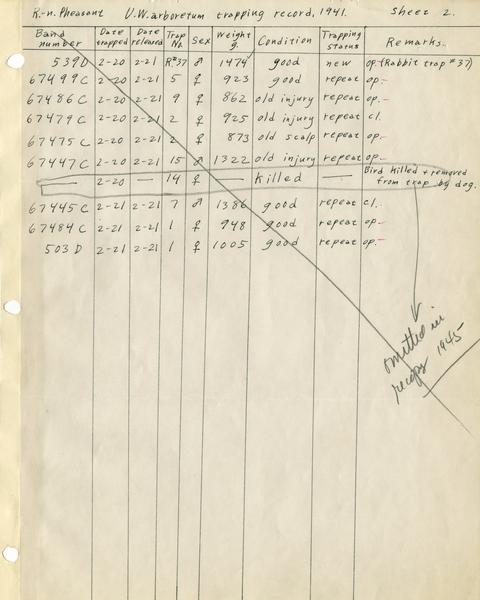 R.-n. Pheasant U.W. arboretum trapping record, 1941. Sheet 2.
Band number Date trapped Date released Trap No. Sex Weight g. Condition Trapping status Remarks.
539D 2-20 2-21 R#37 ♂ 1474 good new op. (Rabbit trap #37)
67499C 2-20 2-21 5 ♀ 923 good repeat op.-
67486C 2-20 2-21 9 ♀ 862 old injury repeat op.-
67479C 2-20 2-21 2 ♀ 925 old injury repeat cl.
67475C 2-20 2-21 2 ♀ 873 old scalp repeat op.-
67447C 2-20 2-21 15 ♂ 1322 old injury repeat op.-
— 2-20 — 14 ♀ — killed — Bird killed + removed from trap by dog.
67445C 2-21 2-21 7 ♂ 1386 good repeat cl.
67484C 2-21 2-21 1 ♀ 948 good repeat op.-
503D 2-21 2-21 1 ♀ 1005 good repeat op.-
omitted in
recopy 1945